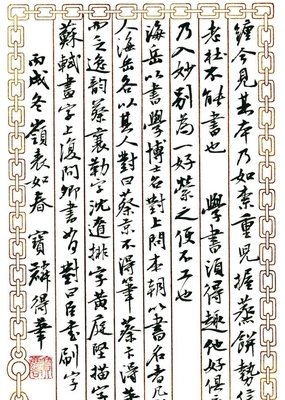 纏今見其本乃如柰重兒握蒸餅勢信
老杜不能書也 學書須得趣他好俱
乃入妙別為一好縈之便不工也
海岳以書學博士召對上問本朝以書名者凡
人海岳各以其人對曰蔡京不得筆蔡卞得筆
而乏逸韻蔡襄勒字沈遼排字黃庭堅描字
蘇軾畫字上復問卿書如何對曰臣書刷字
丙戌冬嶺表如春 寶 得華